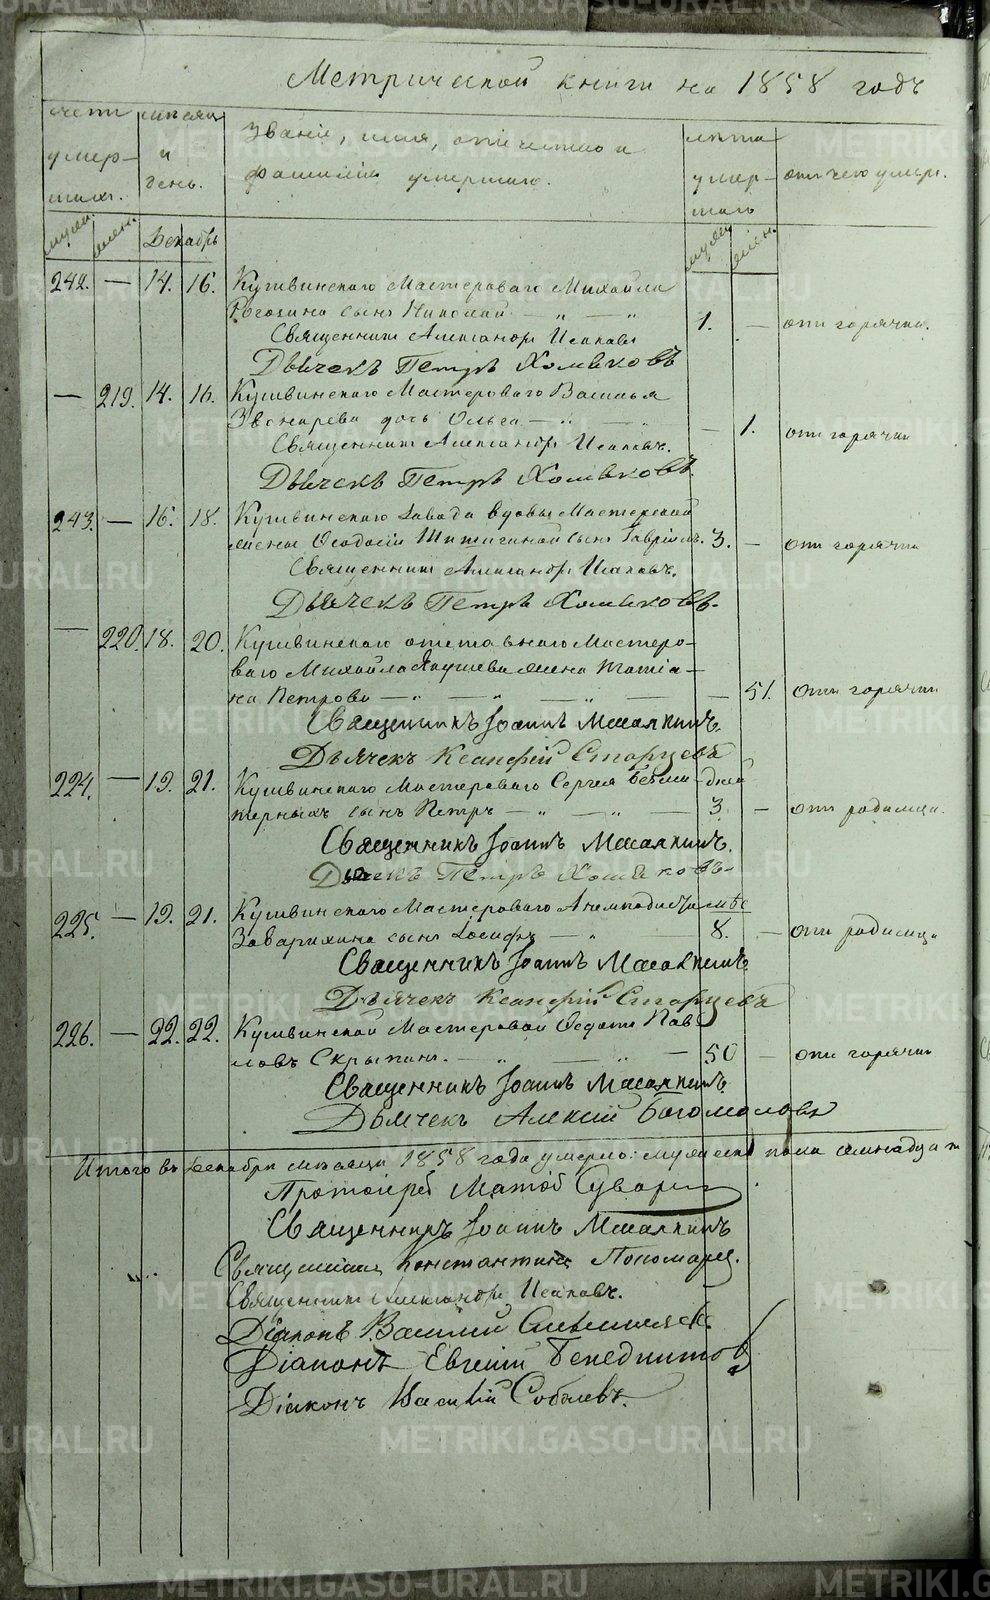 METRIKI.GASO-URAL.RU
Метрической книги на 1858 годъ
счетъ умер- шихъ.
мѣсяц и день.
Званіе, имя, отчество и фамилія умершаго.
лѣта умер- шаго
отъ чего умеръ.
муж. жен.
Декабрь
муж. жен.
242. — 14. 16. Кушвинскаго Мастероваго Михайла
Рогозина сынъ Николай — „ — „ 1. — отъ горячки.
Священникъ Александръ Исаковъ
Дьячекъ Петръ Хомяковъ
— 219. 14. 16. Кушвинскаго Мастероваго Василья
Звонарева дочь Ольга — „ — 1. отъ горячки
Священникъ Александръ Исаковъ.
Дьячекъ Петръ Хомяковъ
243. — 16. 18. Кушвинскаго завода вдовы Мастерской
жены Ѳеодосіи сынъ Гавріилъ. 3. — отъ горячки
Священникъ Александръ Исаковъ.
Дьячекъ Петръ Хомяковъ.
— 220. 18. 20. Кушвинскаго отставнаго Мастеро-
ваго Михайла Якушева жена Татіа-
на Петрова — „ — „ — 51. отъ горячки
Священникъ Іоаннъ
Дьячекъ Ксанфій Старцевъ
224. — 19. 21. Кушвинскаго Мастероваго Сергея дней
сынъ Петръ — „ — „ — 3. — отъ родимца.
Священникъ Іоаннъ
Дьячекъ Петръ Хомяковъ.
225. — 19. 21. Кушвинскаго Мастероваго Анемподиста мѣс
Заварихина сынъ Іосифъ — „ 8. — отъ родимца
Священникъ Іоаннъ
Дьячекъ Ксанфій Старцевъ
226. — 22. 22. Кушвинской Мастеровой Ѳедотъ Пав-
ловъ Скрыпинъ. — „ — „ — 50 — отъ горячки
Священникъ Іоаннъ
Дьячекъ Алексій Богомоловъ
Итого въ Декабрѣ мѣсяцѣ 1858 года умерло: мужеска пола семнадцат
Протоіерей Матѳей
Священникъ Іоаннъ
Священникъ Константинъ Пономарев.
Священникъ Александръ Исаковъ.
Діаконъ Василій
Діаконъ Евгеній Бенедиктов
Діаконъ Василій Соболевъ.